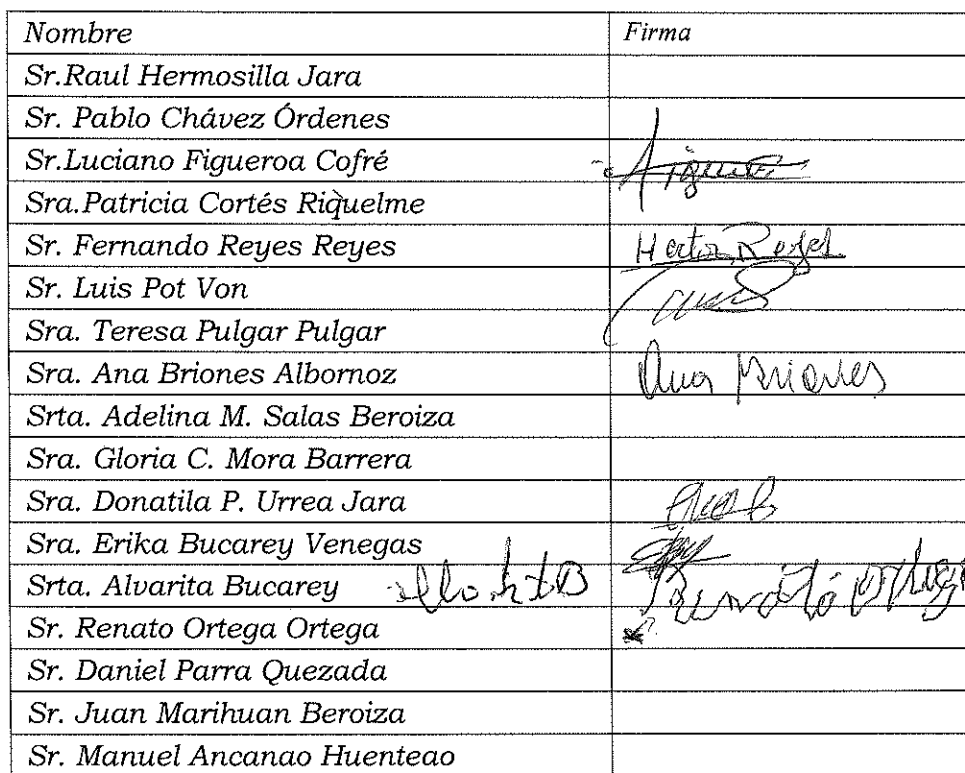 Nombre Firma
Sr.Raul Hermosilla Jara
Sr. Pablo Chávez Órdenes
Sr.Luciano Figueroa Cofré
Sra.Patricia Cortés Riquelme
Sr. Fernando Reyes Reyes Reyes
Sr. Luis Pot Von
Sra. Teresa Pulgar Pulgar
Sra. Ana Briones Albornoz Ana Briones
Srta. Adelina M. Salas Beroiza
Sra. Gloria C. Mora Barrera
Sra. Donatila P. Urrea Jara
Sra. Erika Bucarey Venegas
Srta. Alvarita Bucarey Renato Ortega
Sr. Renato Ortega Ortega
Sr. Daniel Parra Quezada
Sr. Juan Marihuan Beroiza
Sr. Manuel Ancanao Huenteao